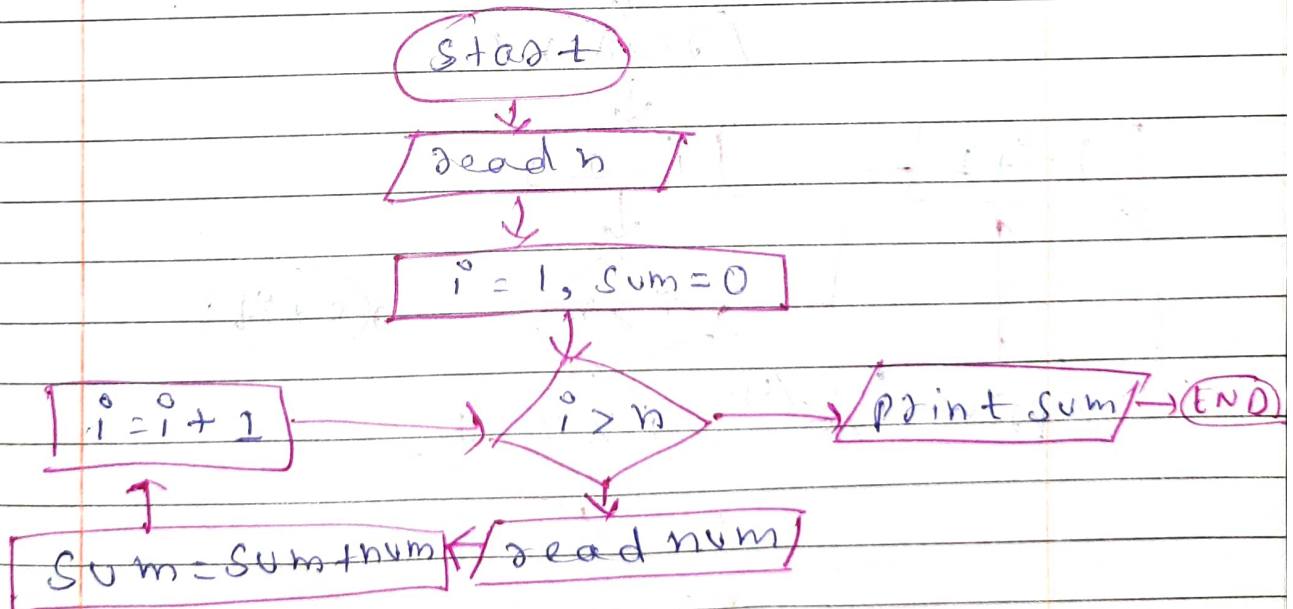 start
read n
i = 1, sum = 0
i > n
print sum
END
i = i + 1
read num
sum = sum + num